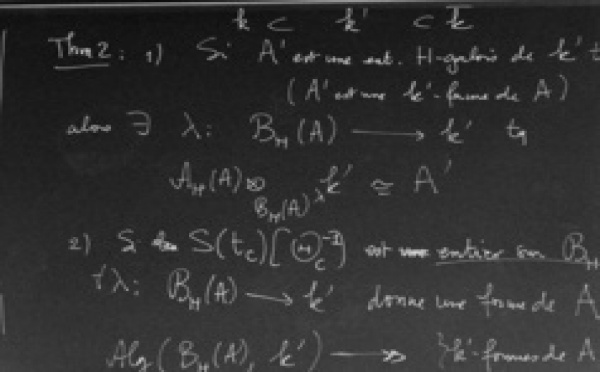 k ⊂ k' ⊂ k̄
Thm 2 : 1) Si A' est une ext. H-galois. de k' t
( A' est une k'-forme de A )
alors ∃ λ : B_H(A) ⟶ k' tq
A_H(A) ⊗_{B_H(A)} λ k' ≅ A'
2) Si S(t_C)[Θ_C^{-1}] est entier sur B_H
∀ λ : B_H(A) ⟶ k' donne une forme de A
Alg ( B_H(A), k' ) ⟶» { k'-formes de A